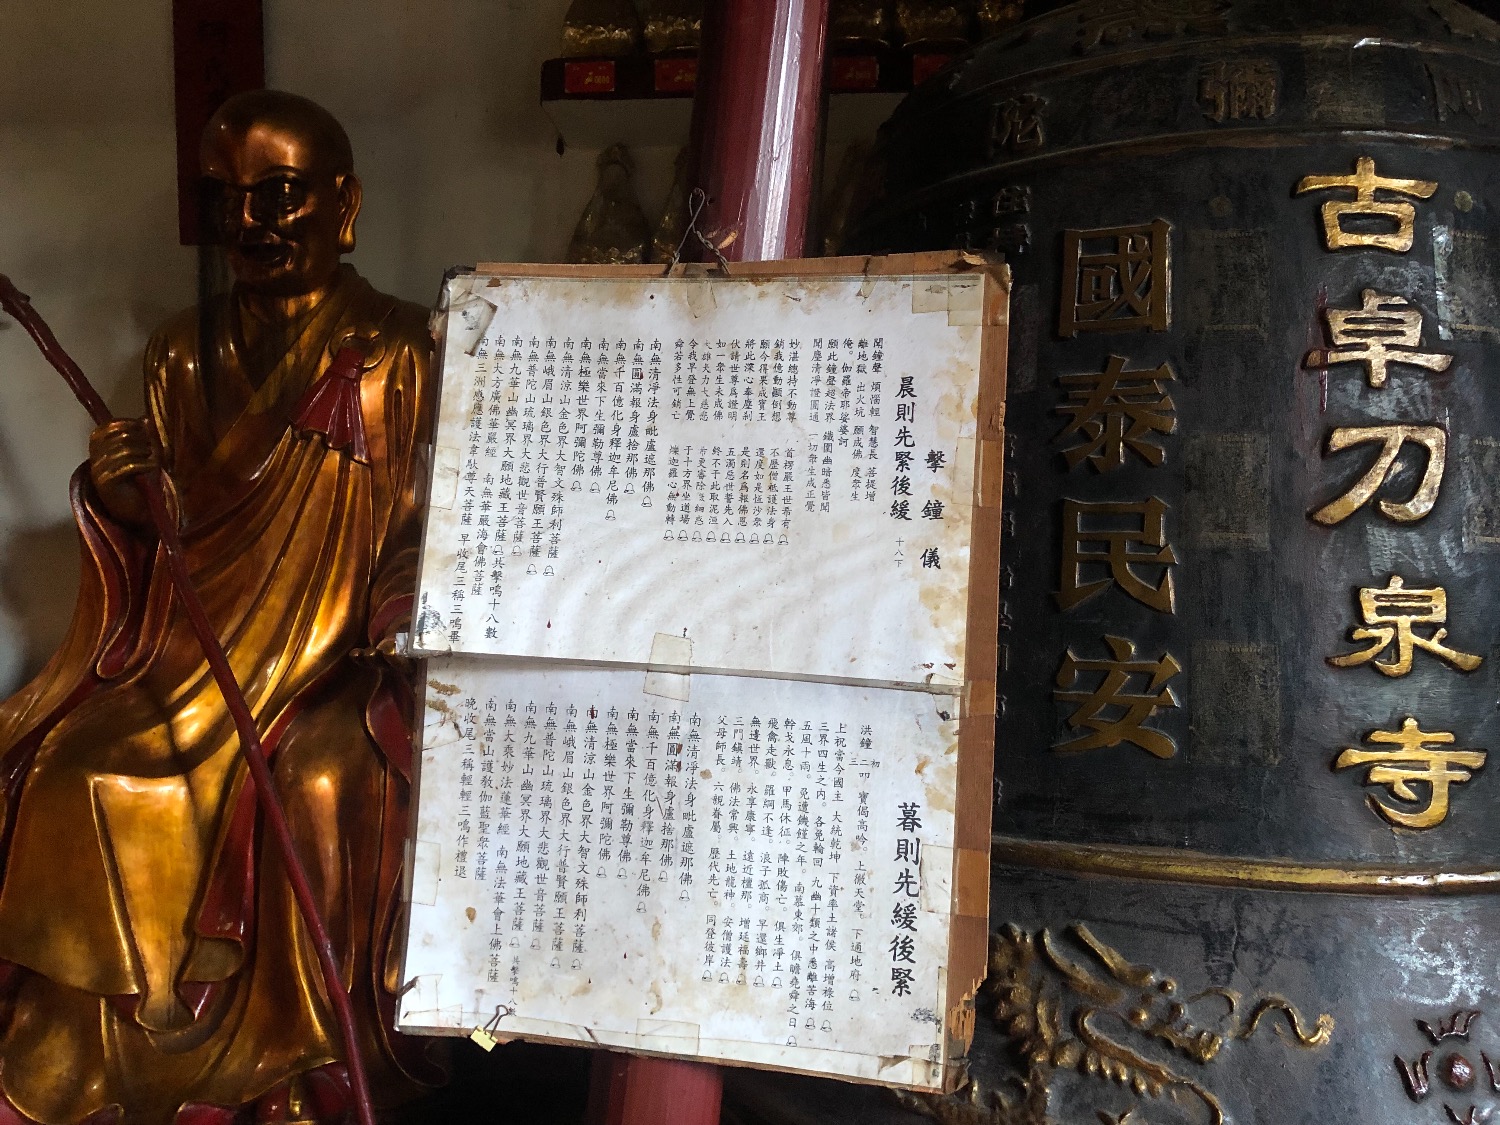 古卓刀泉寺
國泰民安
彌
陀
擊鐘儀
晨則先緊後緩 十八下
聞鐘聲 煩惱輕 智慧長 菩提增
離地獄 出火坑 願成佛 度眾生
唵。伽羅帝耶娑婆訶
願此鐘聲超法界 鐵圍幽暗悉皆聞
聞塵清淨證圓通 一切眾生成正覺
妙湛總持不動尊 首楞嚴王世希有
銷我億劫顛倒想 不歷僧祇護法身
願今得果成寶王 還度如是恆沙眾
將此深心奉塵剎 是則名為報佛恩
伏請世尊為證明 五濁惡世誓先入
如一眾生未成佛 終不于此取泥洹
大雄大力大慈悲 希更審除微細惑
令我早登無上覺 于十方界坐道場
舜若多性可銷亡 爍迦羅心無動轉
南無清淨法身毗盧遮那佛
南無圓滿報身盧捨那佛
南無千百億化身釋迦牟尼佛
南無當來下生彌勒尊佛
南無極樂世界阿彌陀佛
南無清涼山金色界大智文殊師利菩薩
南無峨眉山銀色界大行普賢願王菩薩
南無普陀山琉璃界大悲觀世音菩薩
南無九華山幽冥界大願地藏王菩薩 共擊鳴十八數
南無大方廣佛華嚴經 南無華嚴海會佛菩薩
南無三洲感應護法韋馱尊天菩薩 早收尾三稱三鳴畢
暮則先緩後緊
洪鐘初二三叩 寶偈高吟。上徹天堂。下通地府
上祝當今國主 大統乾坤 下資率土諸侯 高增祿位
三界四生之內。各免輪回 九幽十類之中悉離苦海
五風十雨。免遭饑饉之年。南畝東郊。俱瞻堯舜之日
幹戈永息。甲馬休征。陣敗傷亡。俱生淨土
飛禽走獸。羅網不逢。浪子孤商。早還鄉井
無邊世界。永享康寧。遠近檀那。增延福壽
三門鎮靖。佛法常興。土地龍神。安僧護法
父母師長。六親眷屬。歷代先亡。同登彼岸
南無清淨法身毗盧遮那佛
南無圓滿報身盧捨那佛
南無千百億化身釋迦牟尼佛
南無當來下生彌勒尊佛
南無極樂世界阿彌陀佛
南無清涼山金色界大智文殊師利菩薩
南無峨眉山銀色界大行普賢願王菩薩
南無普陀山琉璃界大悲觀世音菩薩
南無九華山幽冥界大願地藏王菩薩 共擊鳴十八數
南無大乘妙法蓮華經 南無法華會上佛菩薩
南無當山護教伽藍聖眾菩薩
晚收尾三稱輕輕三鳴作禮退